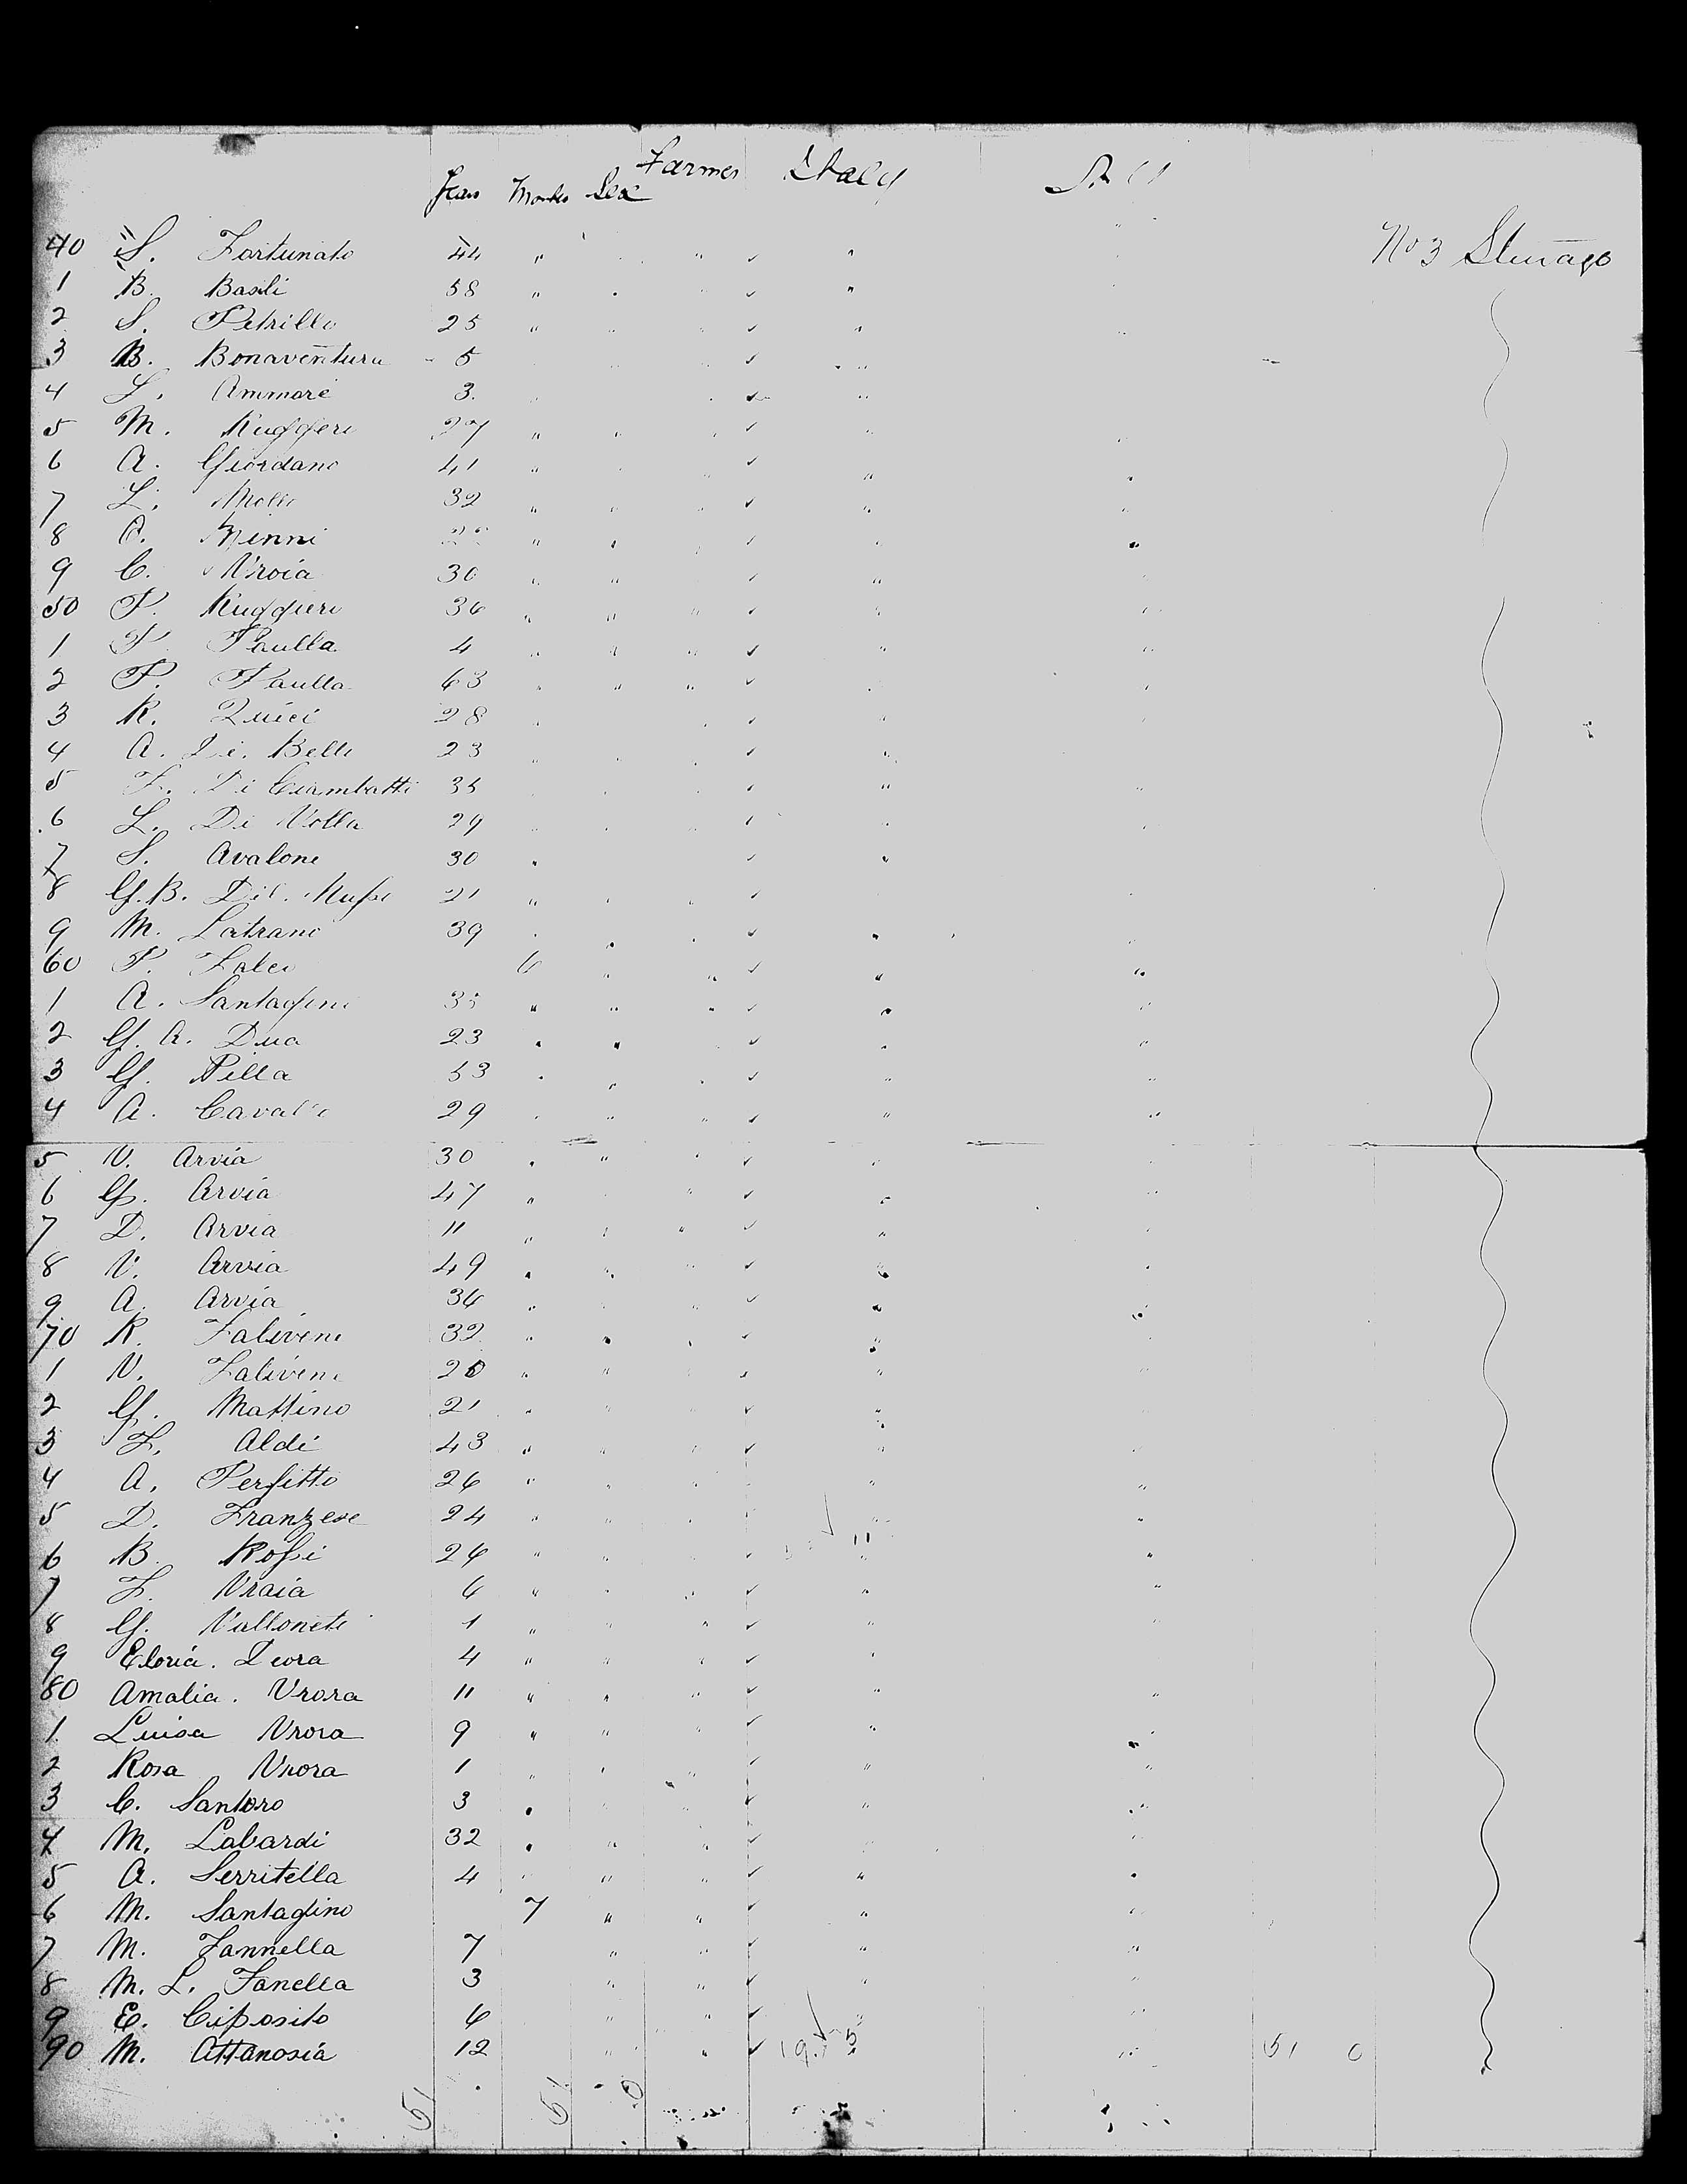 Farmer Italy
Years Months Sex
No 3 Steerage
40 S. Fortunato 44 " " "
1 B. Basili 58 " " "
2 S. Petrillo 25 " " "
3 B. Bonaventura 5 "
4 L. Ammore 3 "
5 M. Ruggeri 27 " " "
6 A. Giordano 41 " " "
7 L. Molle 32 " " "
8 A. Minni " " "
9 C. Vroia 30 " " "
50 P. Ruggieri 36 " " "
1 P. Paulla 4 " " "
2 P. Paulla 63 " " "
3 R. Quici 28 " "
4 A. Di. Bello 23 " "
5 F. Di Ciambatti 35 " "
6 L. Di Volla 29 " "
7 S. Avalone 30 " "
8 G. B. Del. 21 " " "
9 M. Latrano 39 " " "
60 P. Falco 6 " " "
1 A. Santagine 35 " " "
2 G. A. Dua 23 " " "
3 G. Pilla 53 " " "
4 A. Cavallo 29 " " "
5 V. Arvia 30 " " "
6 G. Arvia 47 " " "
7 D. Arvia 11 " " "
8 V. Arvia 49 " " "
9 A. Arvia 34 " " "
70 R. Falivene 32 " " "
1 V. Falivene 20 " " "
2 G. Mattino 21 " " "
3 F. Aldi 43 " " "
4 A. Perfitto 26 " " "
5 D. Franzese 24 " " "
6 B. Rossi 24 " " " 11
7 F. Vraia 6 " " "
8 G. Valloneti 1 " " "
9 Eloria. Deora 4 " " "
80 Amalia. Vrora 11 " " "
1 Luisa Vrora 9 " " "
2 Rosa Vrora 1 " " "
3 C. Santoro 3 " " "
4 M. Labardi 32 " " "
5 A. Serritella 4 " " "
6 M. Santagino 7 " " "
7 M. Fannella 7 " " "
8 M. L. Fanella 3 " " "
9 E. Ciposito 6 " " "
90 M. Attanosia 12 " " " 51 0
51 51 0